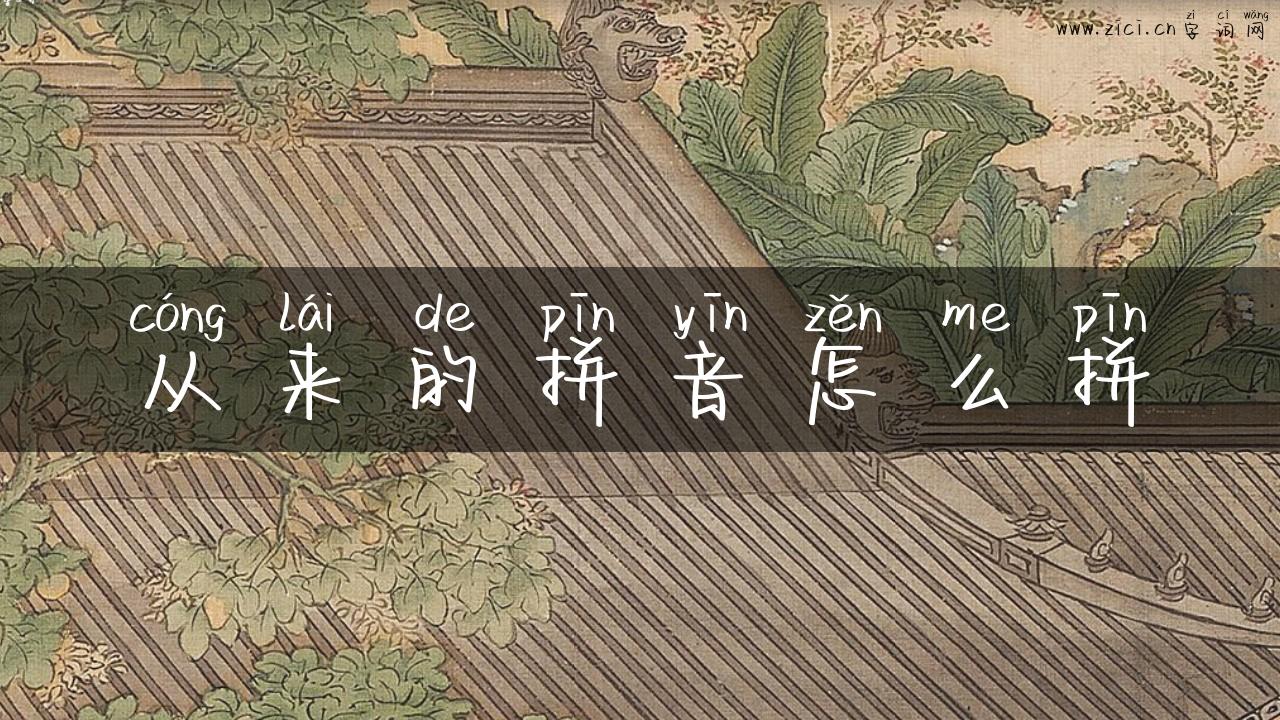 zì cí wǎng
www.zici.cn 字词网
cóng lái de pīn yīn zěn me pīn
从来的拼音怎么拼